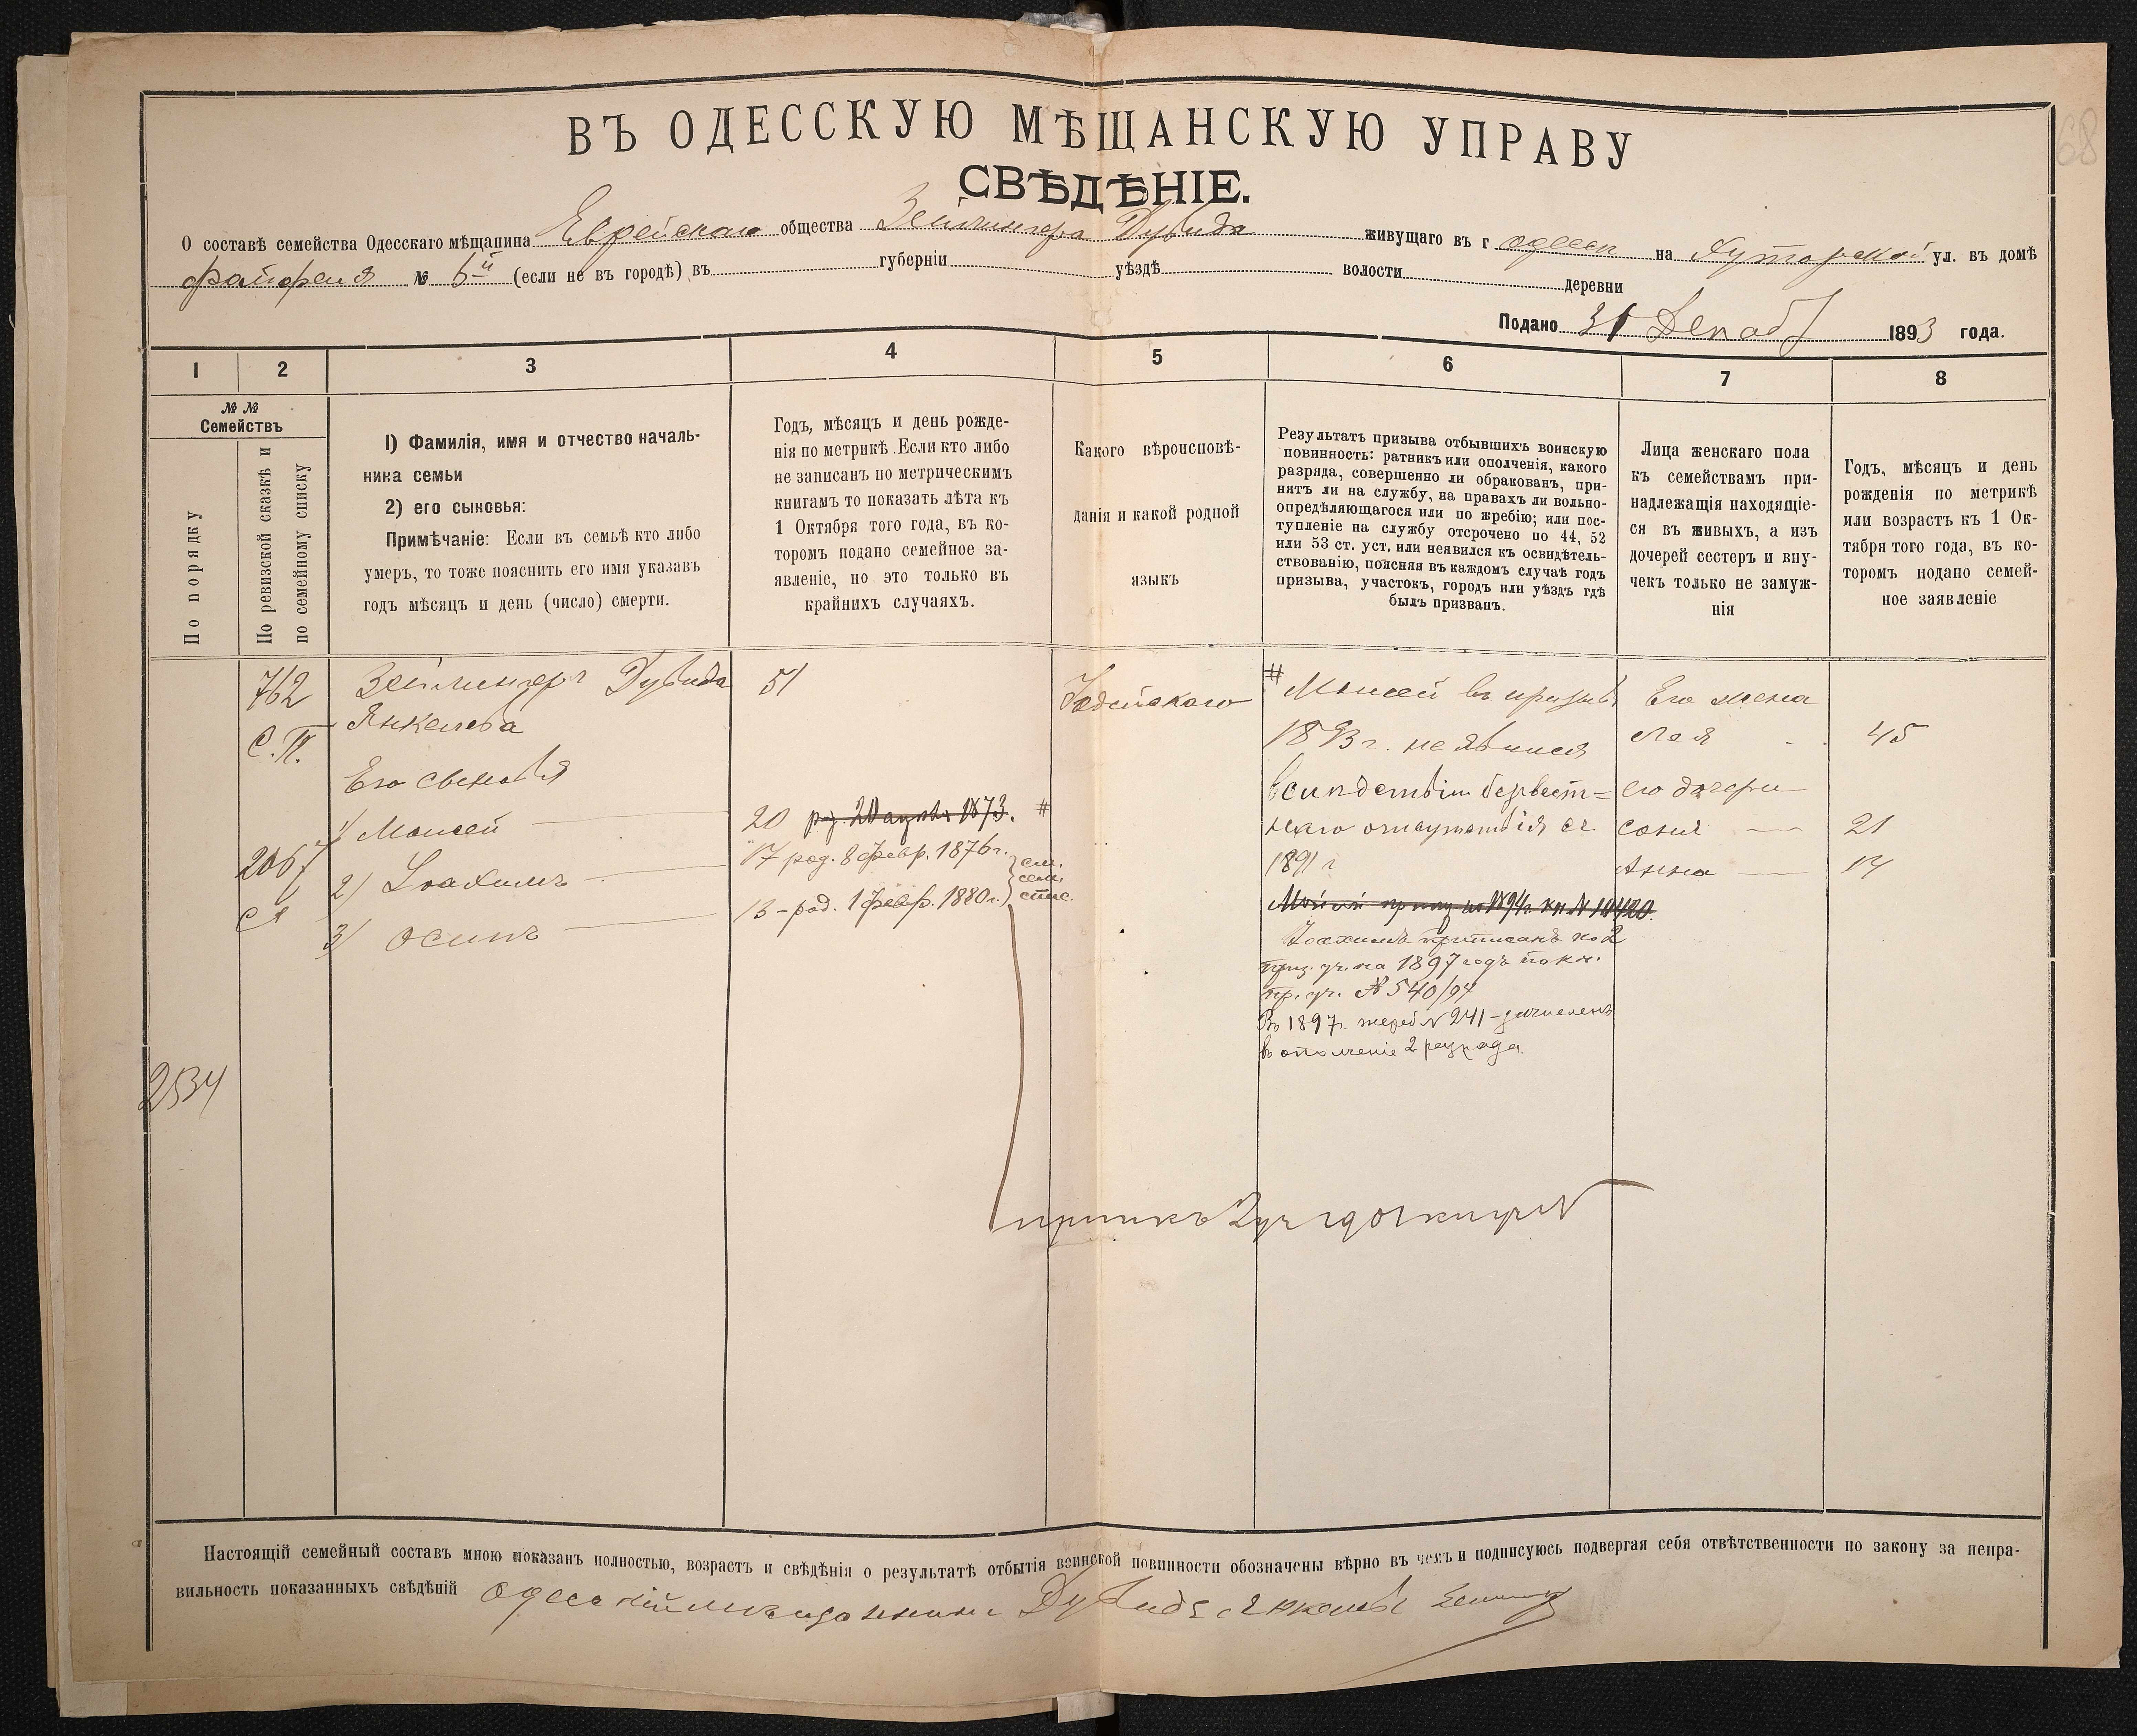 68
ВЪ ОДЕССКУЮ МѢЩАНСКУЮ УПРАВУ
СВѢДѢНІЕ.
О составѣ семейства Одесскаго мѣщанина Еврейскаго общества Зейлингера Дувида живущаго въ г Одессѣ на Хуторской ул. въ домѣ
№ 6й (если не въ городѣ) въ губерніи уѣздѣ волости деревни
Подано 31 Декаб 1893 года.
1 2 3 4 5 6 7 8
№ № Семействъ
По порядку
По ревизской сказкѣ и
по семейному списку
1) Фамилія, имя и отчество началь-
ника семьи
2) его сыновья:
Примѣчаніе: Если въ семьѣ кто либо
умеръ, то тоже пояснить его имя указавъ
годъ мѣсяцъ и день (число) смерти.
Годъ, мѣсяцъ и день рожде-
нія по метрикѣ. Если кто либо
не записанъ по метрическимъ
книгамъ то показать лѣта къ
1 Октября того года, въ ко-
торомъ подано семейное за-
явленіе, но это только въ
крайнихъ случаяхъ.
Какого вѣроисповѣ-
данія и какой родной
языкъ
Результатъ призыва отбывшихъ воинскую
повинность: ратникъ или ополченія, какого
разряда, совершенно ли обракованъ, при-
нятъ ли на службу, на правахъ ли вольно-
опредѣляющагося или по жребію; или пос-
тупленіе на службу отсрочено по 44, 52
или 53 ст. уст. или неявился къ освидѣтель-
ствованію, поясняя въ каждомъ случаѣ годъ
призыва, участокъ, городъ или уѣздъ гдѣ
былъ призванъ.
Лица женскаго пола
къ семействамъ при-
надлежащія находящіе-
ся въ живыхъ, а изъ
дочерей сестеръ и вну-
чекъ только не замуж-
нія
Годъ, мѣсяцъ и день
рожденія по метрикѣ
или возрастъ къ 1 Ок-
тября того года, въ ко-
торомъ подано семей-
ное заявленіе
762
С.П.
2067
2534
Зейлингеръ Дувидъ
Янкелевъ
Его сыновья
1) Моисей
2) Іоахимъ
3) Осипъ
51
20 род. 20 1873. #
17 род. 8 февр. 1876 г.
13 - род. 1 февр. 1880 г.
см.
сем.
спис.
Іудейскаго
# Моисей въ призывъ
1893 г. не явился
вслѣдствіи безвѣст=
наго отсутствія съ
1891 г
1894 г. кн. № 10420.
Іоахимъ приписанъ ко 2
приз. уч. на 1897 годъ по кн.
пр. уч. № 540/94
Въ 1897 г. жереб № 241 - зачисленъ
въ ополченіе 2 разряда.
Его жена
Лея 45
его дочери
Соня 21
Анна 14
Настоящій семейный составъ мною показанъ полностью, возрастъ и свѣдѣнія о результатѣ отбытія воинской повинности обозначены вѣрно въ чемъ и подписуюсь подвергая себя отвѣтственности по закону за непра-
вильность показанныхъ свѣдѣній Одесскій мѣщанинъ Дувидъ Янкелевъ